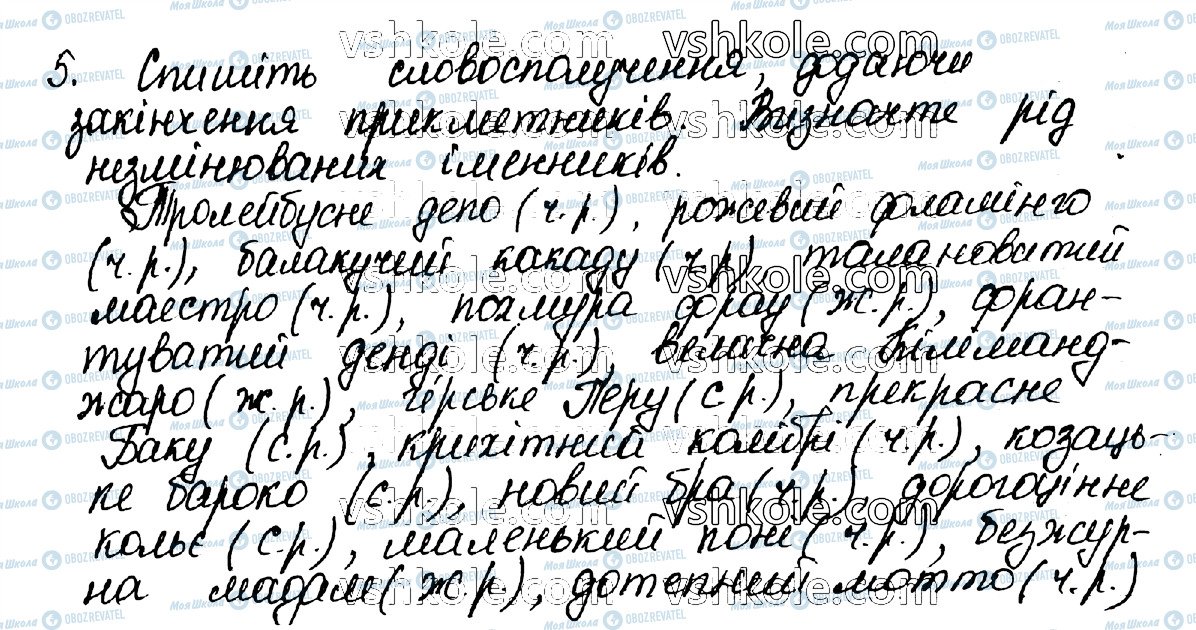 5. Спишіть словосполучення, додаючи
закінчення прикметників. Визначте рід
незмінюваних іменників.
Тролейбусне депо (ч.р.), рожевий фламінго
(ч.р.), балакучий какаду (ч.р), талановитий
маестро (ч.р.), похмура фрау (ж.р.), фран-
туватий денді (ч.р.), велична Кіліманд-
жаро (ж.р.), гірське Перу (с.р.), прекрасне
Баку (с.р.), крихітний колібрі (ч.р.), козаць-
ке бароко (с.р.), новий бра (ч.р.), дорогоцінне
кольє (с.р.), маленький поні (ч.р.), безжур-
на мадам (ж.р), дотепний мотто (ч.р.)